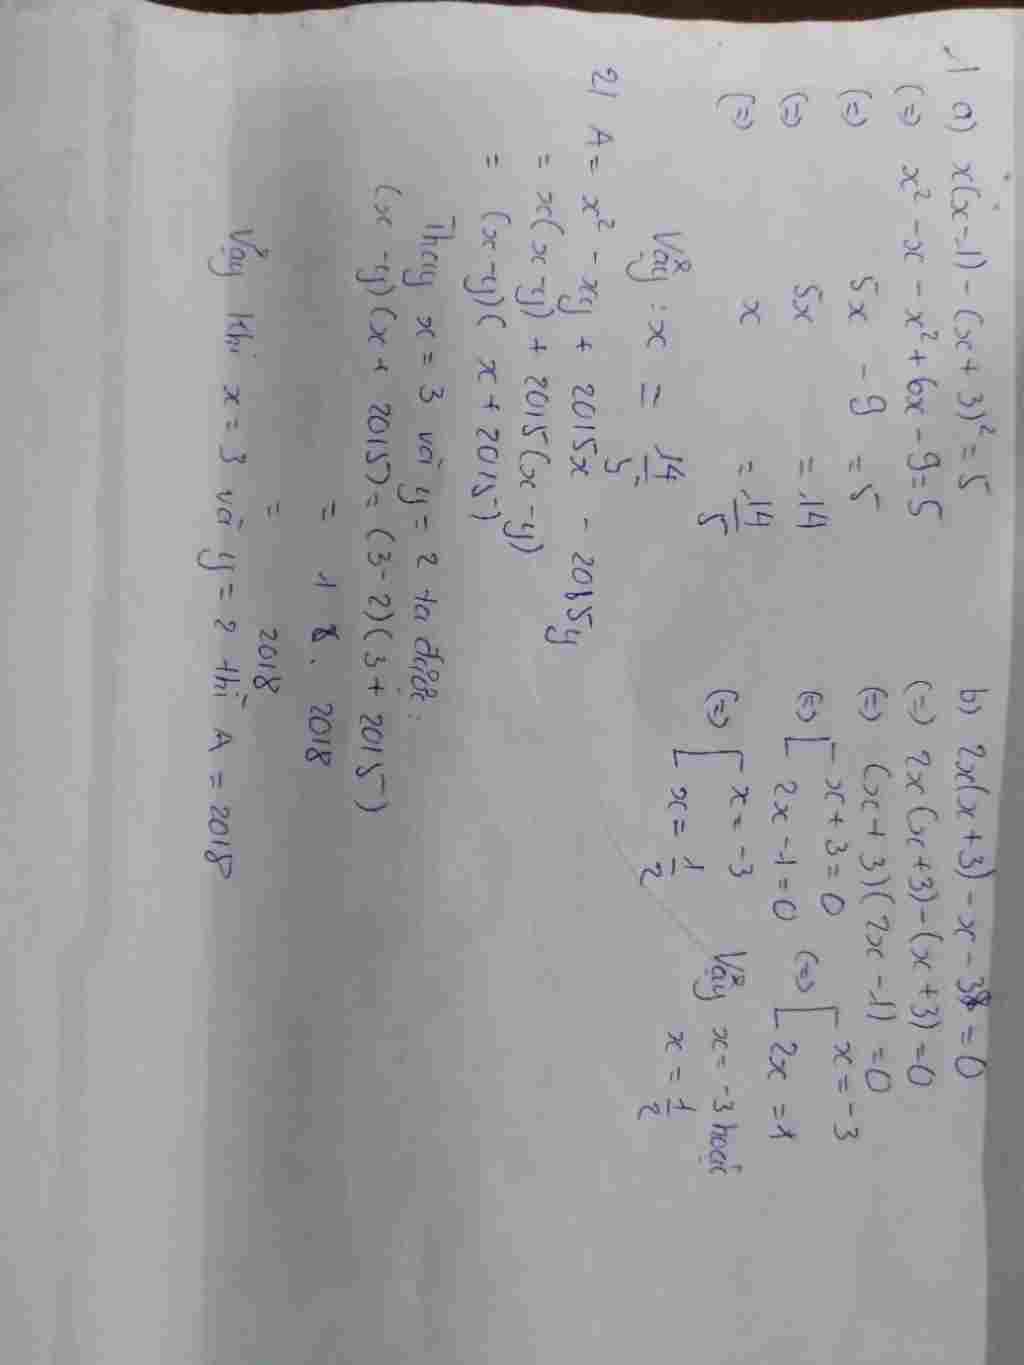 1 a) x(x-1) - (x+3)² = 5
(=) x² - x - x² + 6x - 9 = 5
(=) 5x - 9 = 5
(=) 5x = 14
(=) x = 14/5
Vậy : x = 14/5
b) 2x(x+3) - x - 3 = 0
(=) 2x(x+3) - (x+3) = 0
(=) (x+3)(2x-1) = 0
(=) [ x+3 = 0
2x - 1 = 0
(=) [ x = -3
2x = 1
(=) [ x = -3
x = 1/2
Vậy x = -3 hoặc
x = 1/2
2) A = x² - xy + 2015x - 2015y
= x(x-y) + 2015(x-y)
= (x-y)(x + 2015)
Thay x = 3 và y = 2 ta được :
(x-y)(x + 2015) = (3-2)(3 + 2015)
= 1 . 2018
= 2018
Vậy khi x = 3 và y = 2 thì A = 2018